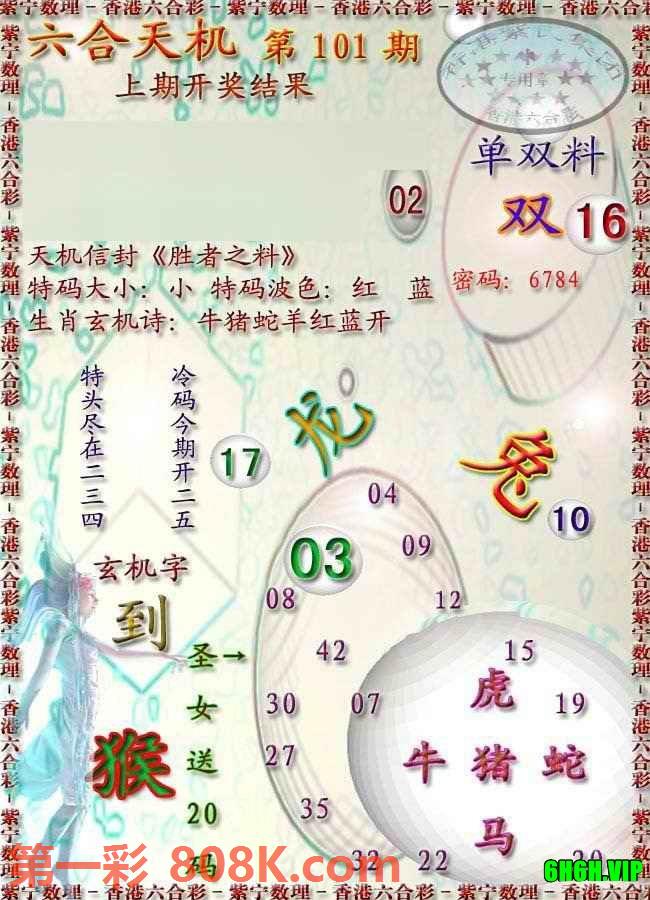 紫宁数理－香港六合彩－紫宁数理－香港六合彩－紫宁数理－香港六合彩－紫宁数理
六合天机 第 101 期
上期开奖结果
专用章
香港六合彩
单双料
双 16
02
天机信封《胜者之料》
特码大小：小 特码波色：红 蓝
密码：6784
生肖玄机诗：牛猪蛇羊红蓝开
特头尽在二三四
冷码今期开二五
17
龙
兔
10
03
玄机字
到
猴
圣→
女
送
20
码
04
09
08
12
42
15
30
07
19
27
35
32
22
20
虎
牛 猪 蛇
马
第一彩 808K.com
6H6H.VIP
紫宁数理－香港六合彩－紫宁数理－香港六合彩－紫宁数理－香港六合彩－紫宁数理